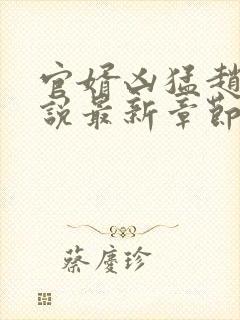 官婿凶猛趙
說最新章節
蔡慶珍